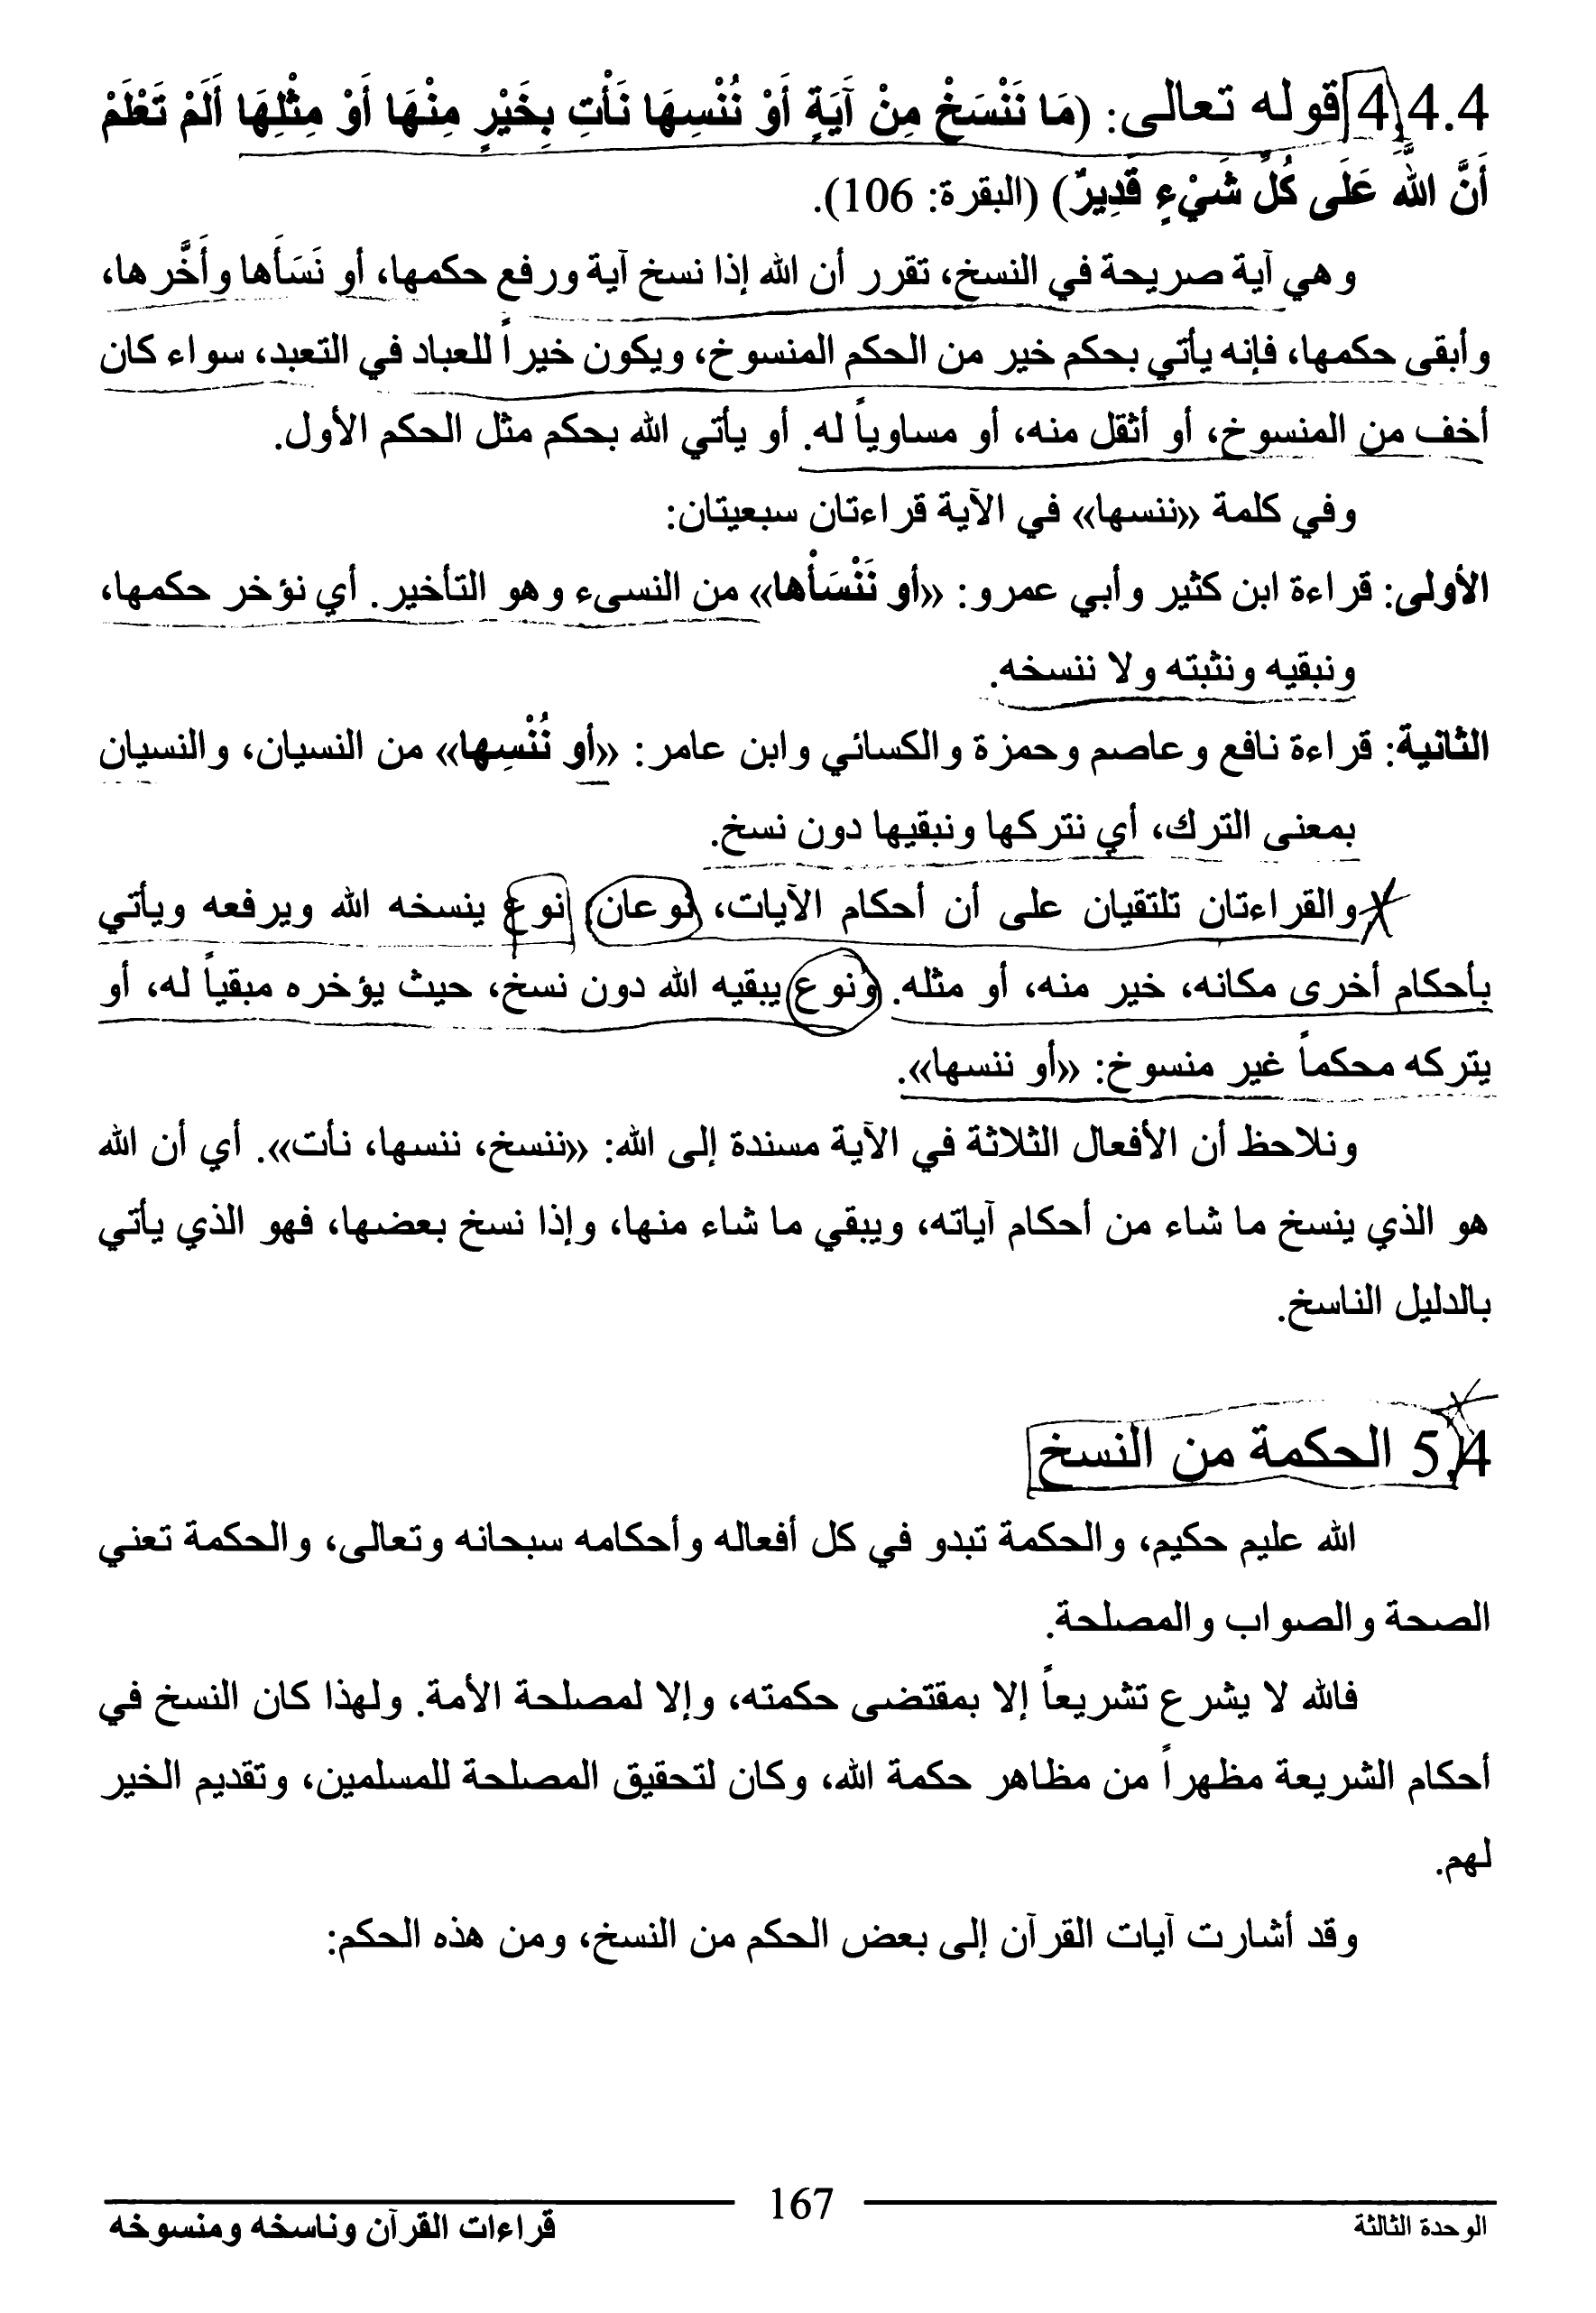 4.4.4 قوله تعالى: (مَا نَنْسَخْ مِنْ آيَةٍ أَوْ نُنْسِهَا نَأْتِ بِخَيْرٍ مِنْهَا أَوْ مِثْلِهَا أَلَمْ تَعْلَمْ
أَنَّ اللَّهَ عَلَى كُلِّ شَيْءٍ قَدِيرٌ) (البقرة: 106).
وهي آية صريحة في النسخ، تقرر أن الله إذا نسخ آية ورفع حكمها، أو نَسَأَها وأَخَّرها،
وأبقى حكمها، فإنه يأتي بحكم خير من الحكم المنسوخ، ويكون خيراً للعباد في التعبد، سواء كان
أخف من المنسوخ، أو أثقل منه، أو مساوياً له. أو يأتي الله بحكم مثل الحكم الأول.
وفي كلمة «ننسها» في الآية قراءتان سبعيتان:
الأولى: قراءة ابن كثير وأبي عمرو: «أو نَنْسَأْها» من النسيء وهو التأخير. أي نؤخر حكمها،
ونبقيه ونثبته ولا ننسخه.
الثانية: قراءة نافع وعاصم وحمزة والكسائي وابن عامر: «أو نُنْسِها» من النسيان، والنسيان
بمعنى الترك، أي نتركها ونبقيها دون نسخ.
والقراءتان تلتقيان على أن أحكام الآيات، نوعان: نوع ينسخه الله ويرفعه ويأتي
بأحكام أخرى مكانه، خير منه، أو مثله. ونوع يبقيه الله دون نسخ، حيث يؤخره مبقياً له، أو
يتركه محكماً غير منسوخ: «أو ننسها».
ونلاحظ أن الأفعال الثلاثة في الآية مسندة إلى الله: «ننسخ، ننسها، نأت». أي أن الله
هو الذي ينسخ ما شاء من أحكام آياته، ويبقي ما شاء منها، وإذا نسخ بعضها، فهو الذي يأتي
بالدليل الناسخ.
5.4 الحكمة من النسخ
الله عليم حكيم، والحكمة تبدو في كل أفعاله وأحكامه سبحانه وتعالى، والحكمة تعني
الصحة والصواب والمصلحة.
فالله لا يشرع تشريعاً إلا بمقتضى حكمته، وإلا لمصلحة الأمة. ولهذا كان النسخ في
أحكام الشريعة مظهراً من مظاهر حكمة الله، وكان لتحقيق المصلحة للمسلمين، وتقديم الخير
لهم.
وقد أشارت آيات القرآن إلى بعض الحكم من النسخ، ومن هذه الحكم:
الوحدة الثالثة 167 قراءات القرآن وناسخه ومنسوخه